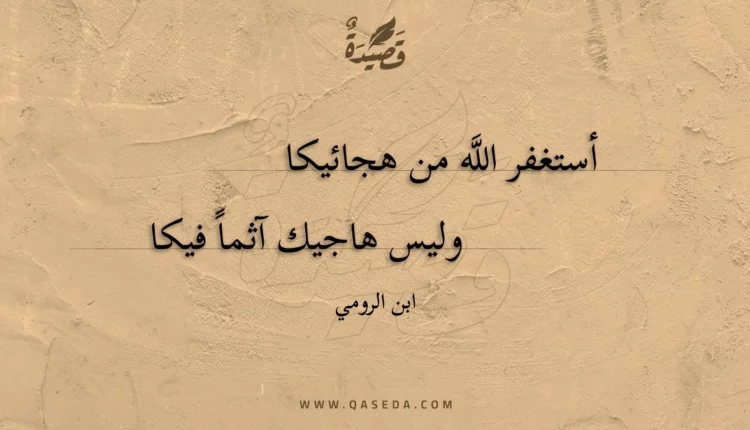 قَصِيدَةٌ
أستغفر اللَّه من هجائيكا
وليس هاجيك آثماً فيكا
ابن الرومي
WWW.QASEDA.COM